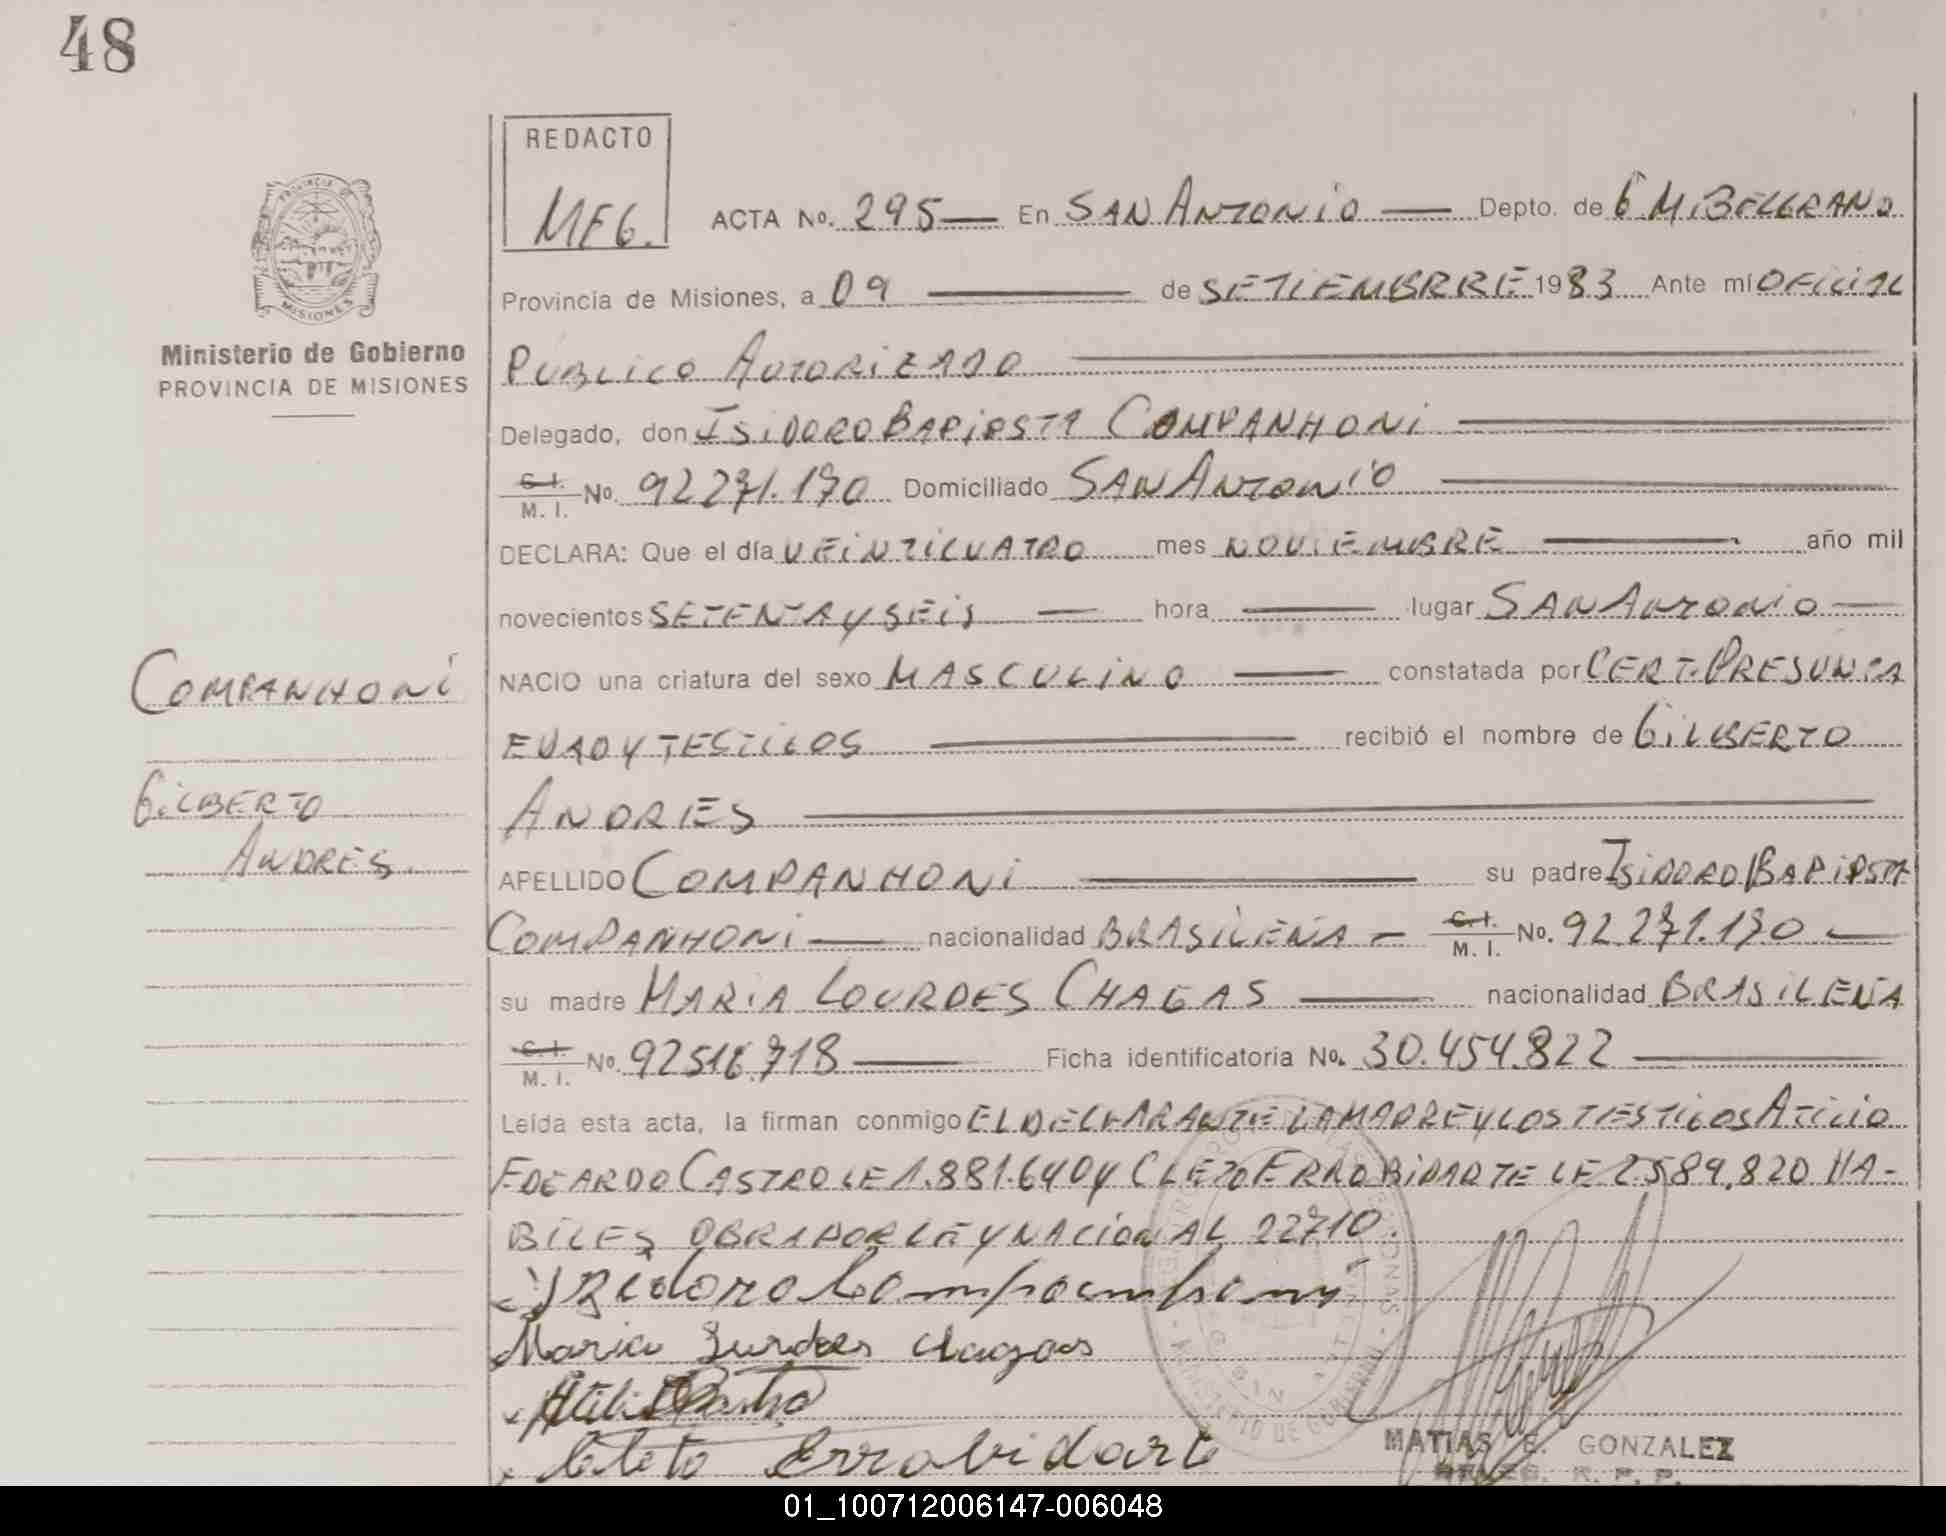 48
REDACTO
MEG.
ACTA No. 295 En SAN ANTONIO Depto. de G M. BELGRANO
Provincia de Misiones, a 09 de SETIEMBRRE 1983 Ante mí OFICIAL
PUBLICO AUTORIZADO
Delegado, don ISIDORO BAPIPSTA COMPANHONI
C.I. M. I. No. 92271.170 Domiciliado SAN ANTONIO
DECLARA: Que el día VEINTICUATRO mes NOVIEMBRE año mil
novecientos SETENTA Y SEIS hora lugar SAN ANTONIO
NACIO una criatura del sexo MASCULINO constatada por CERT. PRESUNTA
EDAD Y TESTIGOS recibió el nombre de GILBERTO
ANDRES
APELLIDO COMPANHONI su padre ISIDORO BAPIPSTA
COMPANHONI nacionalidad BRASILEÑA C.I. M. I. No. 92.271.170
su madre MARIA LOURDES CHAGAS nacionalidad BRASILEÑA
C.I. M. I. No. 92516.718 Ficha identificatoria No. 30.454.822
Leída esta acta, la firman conmigo EL DECLARANTE LA MADRE Y LOS TESTIGOS ATILIO
EDGARDO CASTRO LE 1.881.640 Y CLETO ERROBIDARTE LE 2.589.820 HA-
BILES OBRADOR LEY NACIONAL 22710.
Maria Lurdes Chagas
Cleto Errobidarte
MATIAS E. GONZALEZ
R. P. P.
PROVINCIA DE
MISIONES
Ministerio de Gobierno
PROVINCIA DE MISIONES
COMPANHONI
GILBERTO
ANDRES.
01_100712006147-006048